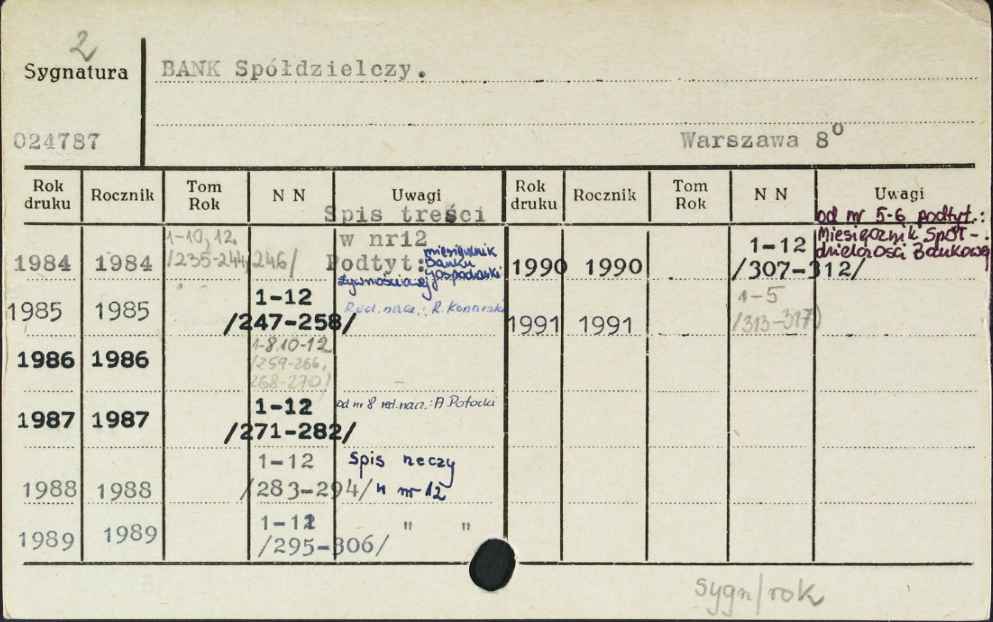 2
Sygnatura BANK Spółdzielczy.
024787 Warszawa 8⁰
Rok druku Rocznik Tom Rok N N Uwagi Rok druku Rocznik Tom Rok N N Uwagi
1984 1984 1-10, 12, /235-244, 246/ Spis treści w nr12 Podtyt: miesięcznik Banku Gospodarki Żywnościowej
1985 1985 1-12 /247-258/ Red. nacz.: R. Konarski
1986 1986 1-8,10-12 /259-266, 268-270/ -
1987 1987 1-12 /271-282/ od nr 8 red. nacz.: A. Potocki
1988 1988 1-12 /283-294/ Spis rzeczy w nr 12
1989 1989 1-12 /295-306/ " "
1990 1990 1-12 /307-312/ od nr 5-6 podtyt.: Miesięcznik Spół-dzielczości Bankowej
1991 1991 1-5 /313-317/
sygn/rok